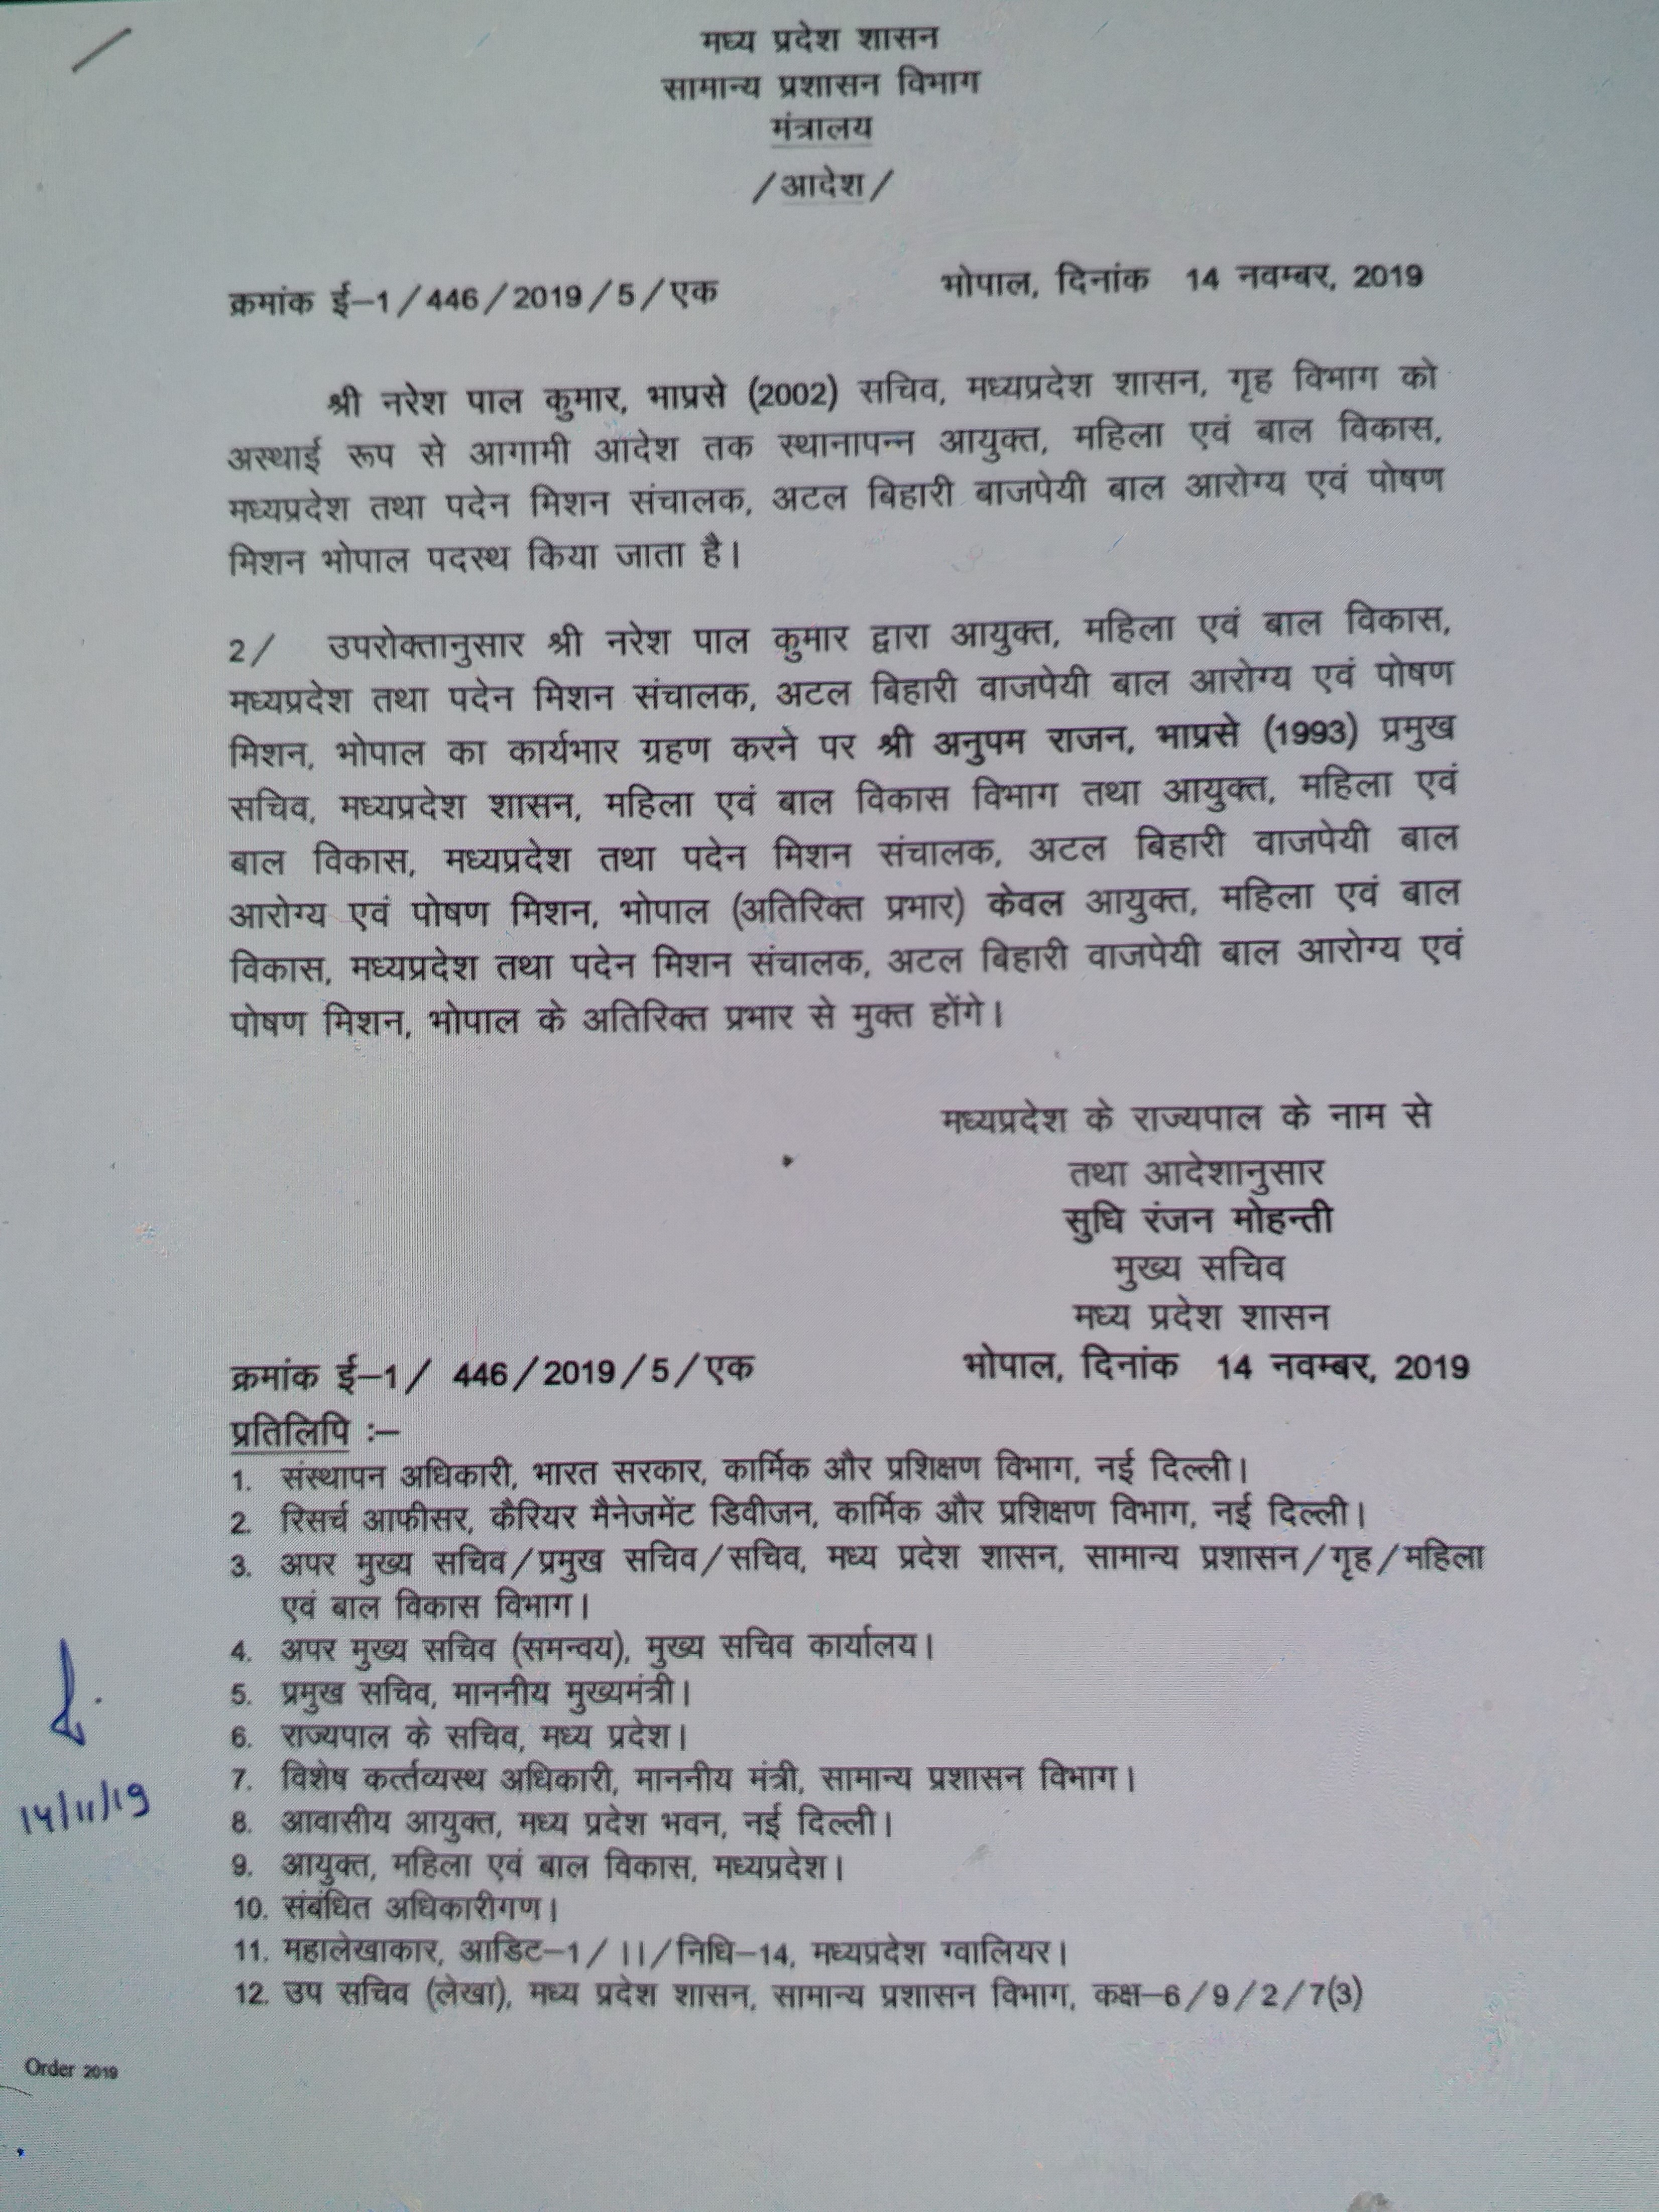 मध्य प्रदेश शासन
सामान्य प्रशासन विभाग
मंत्रालय
/आदेश/
क्रमांक ई–1/446/2019/5/एक भोपाल, दिनांक 14 नवम्बर, 2019
श्री नरेश पाल कुमार, भाप्रसे (2002) सचिव, मध्यप्रदेश शासन, गृह विभाग को
अस्थाई रूप से आगामी आदेश तक स्थानापन्न आयुक्त, महिला एवं बाल विकास,
मध्यप्रदेश तथा पदेन मिशन संचालक, अटल बिहारी बाजपेयी बाल आरोग्य एवं पोषण
मिशन भोपाल पदस्थ किया जाता है।
2/ उपरोक्तानुसार श्री नरेश पाल कुमार द्वारा आयुक्त, महिला एवं बाल विकास,
मध्यप्रदेश तथा पदेन मिशन संचालक, अटल बिहारी वाजपेयी बाल आरोग्य एवं पोषण
मिशन, भोपाल का कार्यभार ग्रहण करने पर श्री अनुपम राजन, भाप्रसे (1993) प्रमुख
सचिव, मध्यप्रदेश शासन, महिला एवं बाल विकास विभाग तथा आयुक्त, महिला एवं
बाल विकास, मध्यप्रदेश तथा पदेन मिशन संचालक, अटल बिहारी वाजपेयी बाल
आरोग्य एवं पोषण मिशन, भोपाल (अतिरिक्त प्रभार) केवल आयुक्त, महिला एवं बाल
विकास, मध्यप्रदेश तथा पदेन मिशन संचालक, अटल बिहारी वाजपेयी बाल आरोग्य एवं
पोषण मिशन, भोपाल के अतिरिक्त प्रभार से मुक्त होंगे।
मध्यप्रदेश के राज्यपाल के नाम से
तथा आदेशानुसार
सुधि रंजन मोहन्ती
मुख्य सचिव
मध्य प्रदेश शासन
क्रमांक ई–1/ 446/2019/5/एक भोपाल, दिनांक 14 नवम्बर, 2019
प्रतिलिपि :–
1. संस्थापन अधिकारी, भारत सरकार, कार्मिक और प्रशिक्षण विभाग, नई दिल्ली।
2. रिसर्च आफीसर, कैरियर मैनेजमेंट डिवीजन, कार्मिक और प्रशिक्षण विभाग, नई दिल्ली।
3. अपर मुख्य सचिव/प्रमुख सचिव/सचिव, मध्य प्रदेश शासन, सामान्य प्रशासन/गृह/महिला
एवं बाल विकास विभाग।
4. अपर मुख्य सचिव (समन्वय), मुख्य सचिव कार्यालय।
5. प्रमुख सचिव, माननीय मुख्यमंत्री।
6. राज्यपाल के सचिव, मध्य प्रदेश।
7. विशेष कर्त्तव्यस्थ अधिकारी, माननीय मंत्री, सामान्य प्रशासन विभाग।
8. आवासीय आयुक्त, मध्य प्रदेश भवन, नई दिल्ली।
9. आयुक्त, महिला एवं बाल विकास, मध्यप्रदेश।
10. संबंधित अधिकारीगण।
11. महालेखाकार, आडिट–1/ II/निधि–14, मध्यप्रदेश ग्वालियर।
12. उप सचिव (लेखा), मध्य प्रदेश शासन, सामान्य प्रशासन विभाग, कक्ष–6/9/2/7(3)
14/11/19
Order 2019